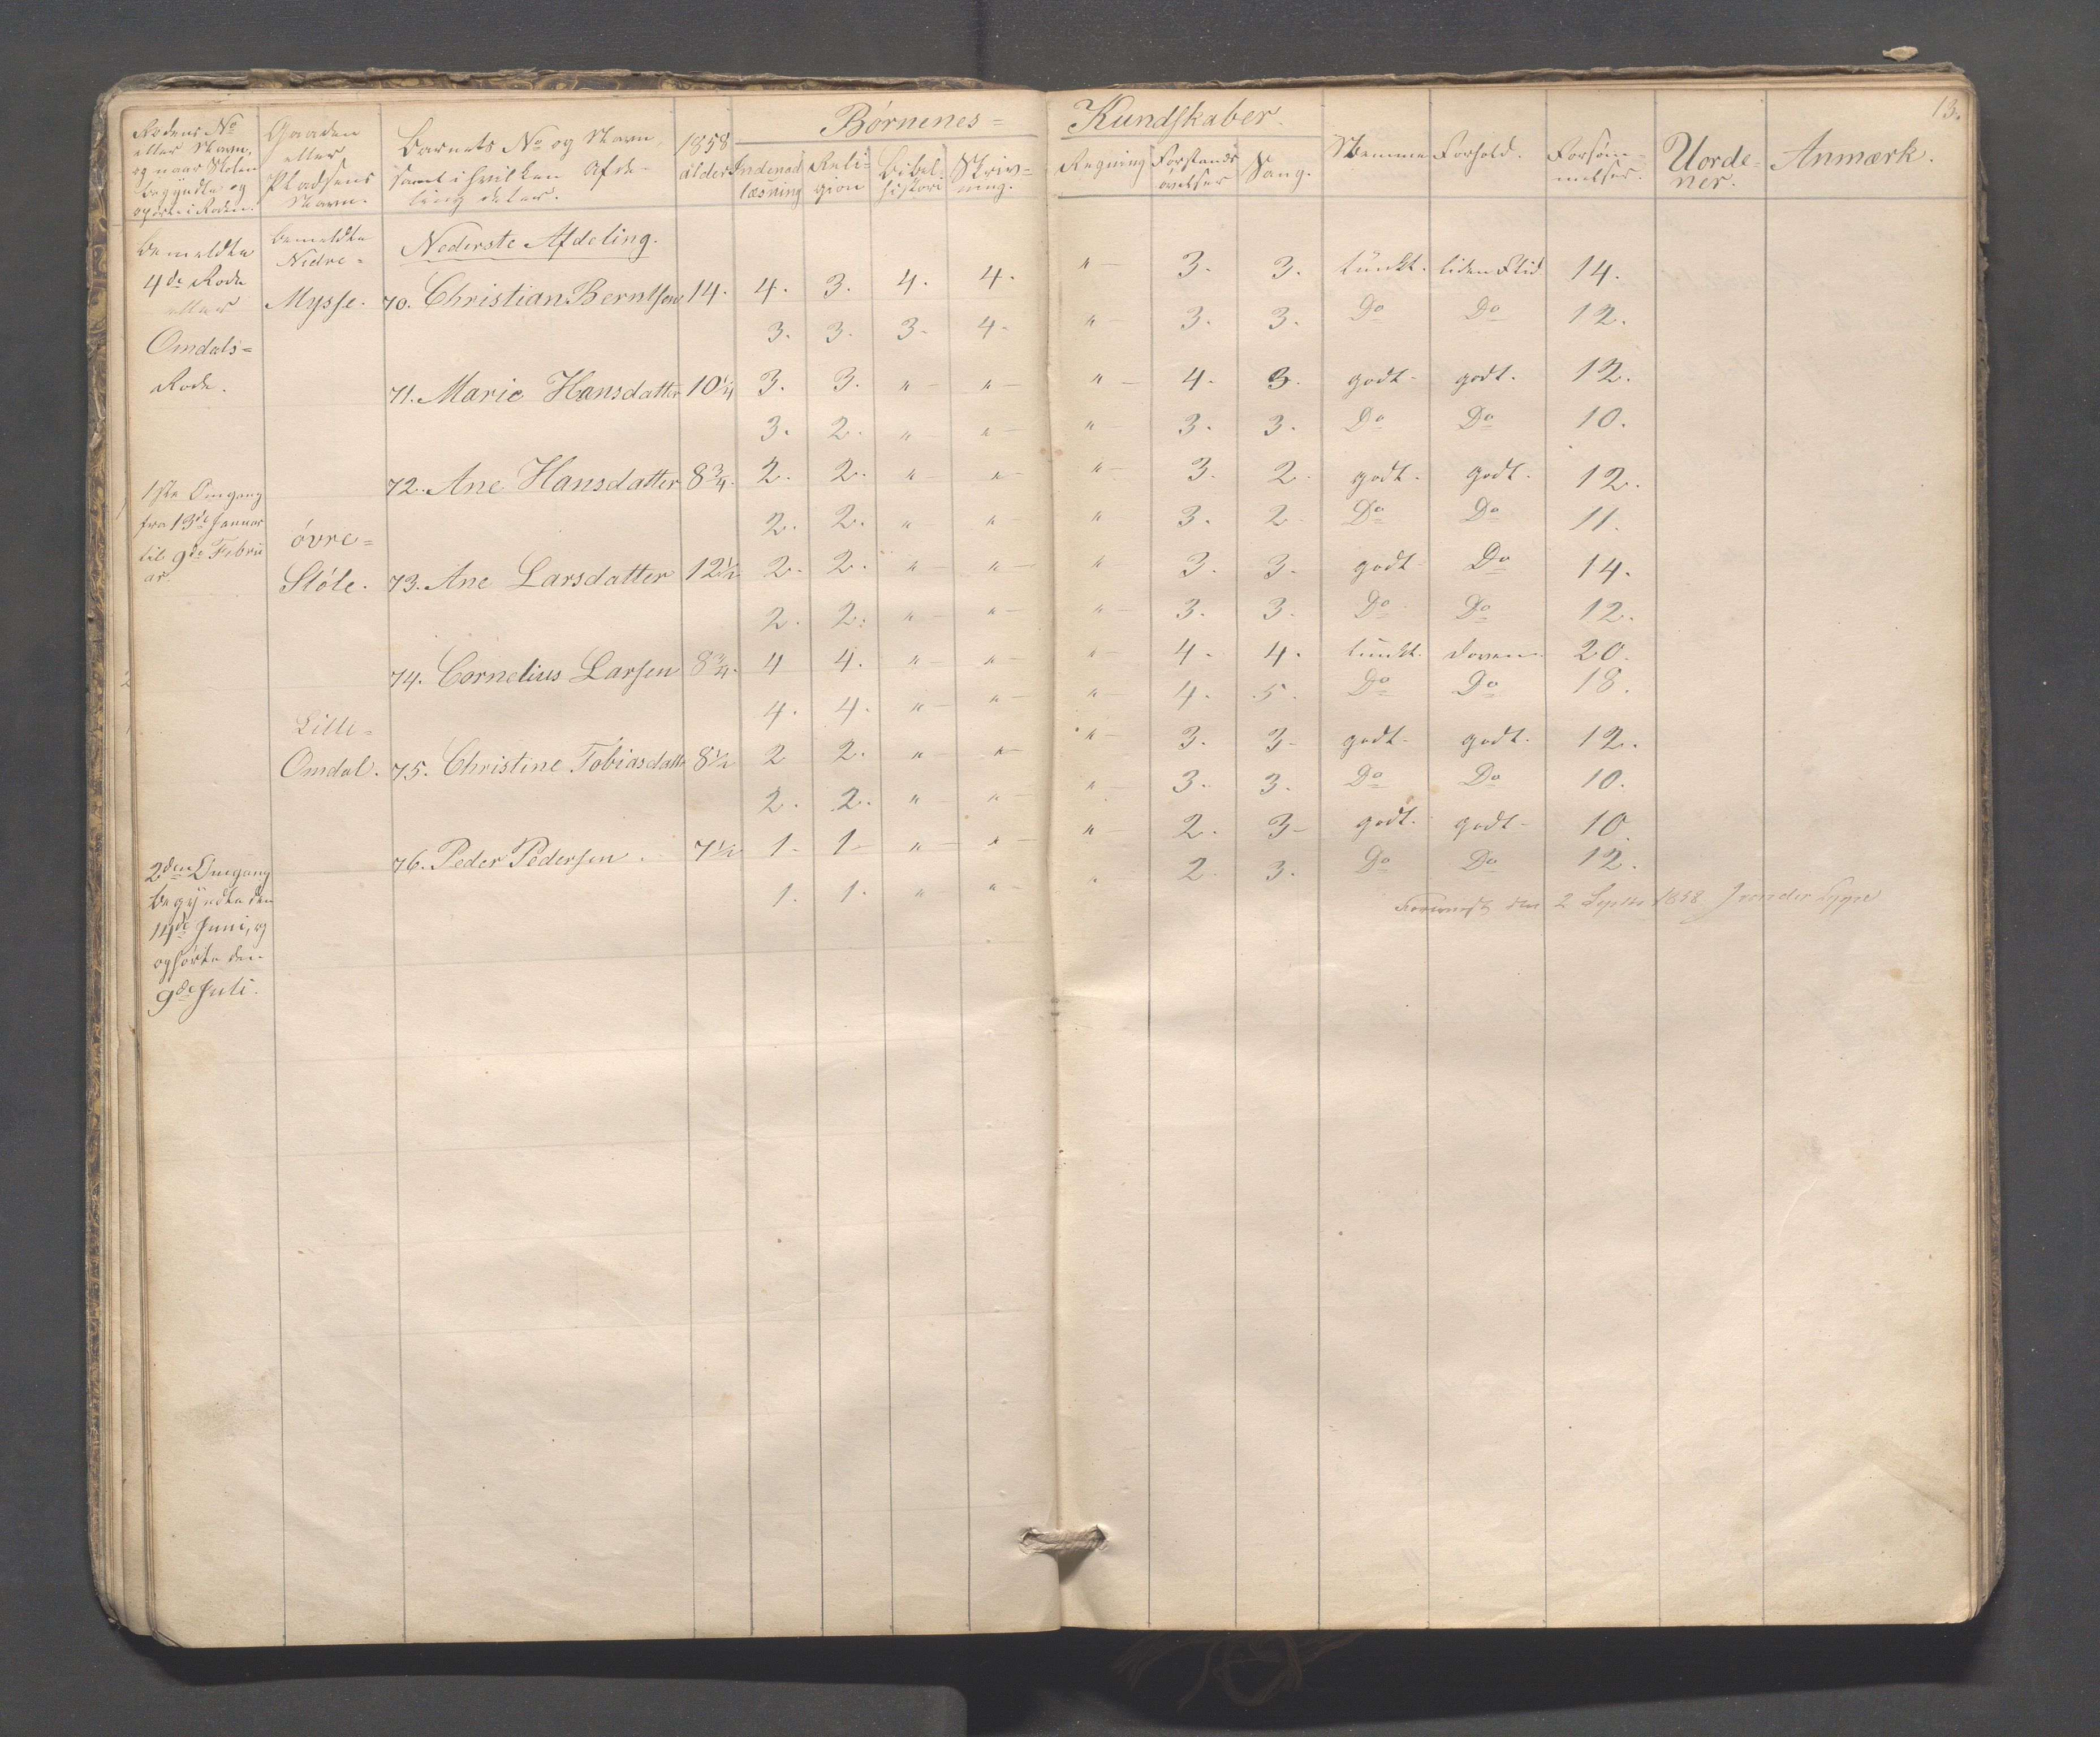 13.
Børnenes= Kundskaber.
Rodens No
eller Navn,
og naar Skolen
begyndte og
ophørte i Roden.
Gaarden
eller
Pladsens
Navn.
Barnets No og Navn,
samt i hvilken Afde-
ling det er.
1858
Alder
Indenad
læsning
Reli-
gion
Bibel-
histori
Skriv=
ning.
Regning
Forstands
øvelser
Sang.
Stemme
Forhold.
Forsøm-
melser.
Uorde-
ner.
Anmærk.
Bemeldte
4de Rode
eller
Omdals=
Rode.
1ste Omgang
fra 13de Januar
til 9de Febru
ar.
2den Omgang
begyndte den
14de Juni, og
ophørte den
9de Juli.
Bemeldte
Nedre=
Mysse.
Nederste Afdeling.
70. Christian Berntsen 14. 4. 3. 4. 4. " 3. 3. tünkt. liden Flid 14.
3. 3. 3. 4. " 3. 3. Do Do 12.
71. Marie Hansdatter 10¼ 3. 3. " " " 4. 3. godt. godt. 12.
3. 2. " " " 3. 3. Do Do 10.
72. Ane Hansdatter 8¾. 2. 2. " " " 3. 2. godt. godt. 12.
2. 2. " " " 3. 2 Do Do 11.
øvre=
Støle. 73. Ane Larsdatter 12½ 2. 2. " " " 3. 3. godt Do 14.
2. 2. " " " 3. 3. Do Do 12.
74. Cornelius Larsen 8¾. 4 4. " " " 4. 4. tünkt. doven 20.
4. 4. " " " 4. 5. Do Do 18.
Lille=
Omdal. 75. Christine Tobiasdatt 8½ 2 2. " " " 3. 3. godt. godt. 12.
2. 2. " " " 3. 3. Do Do 10.
76. Peder Pedersen. 7½ 1. 1. " " " 2. 3. godt. godt. 10.
1. 1. " " " 2. 3. Do Do 12.
den 2 Septbr 1858